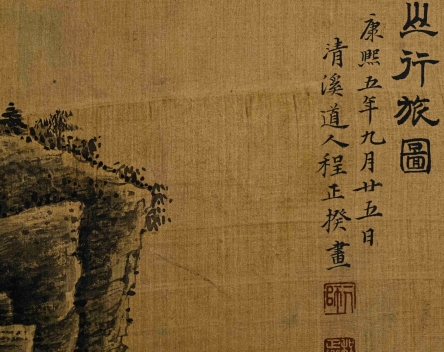 山行旅圖
康熙五年九月廿五日
清溪道人程正揆畫